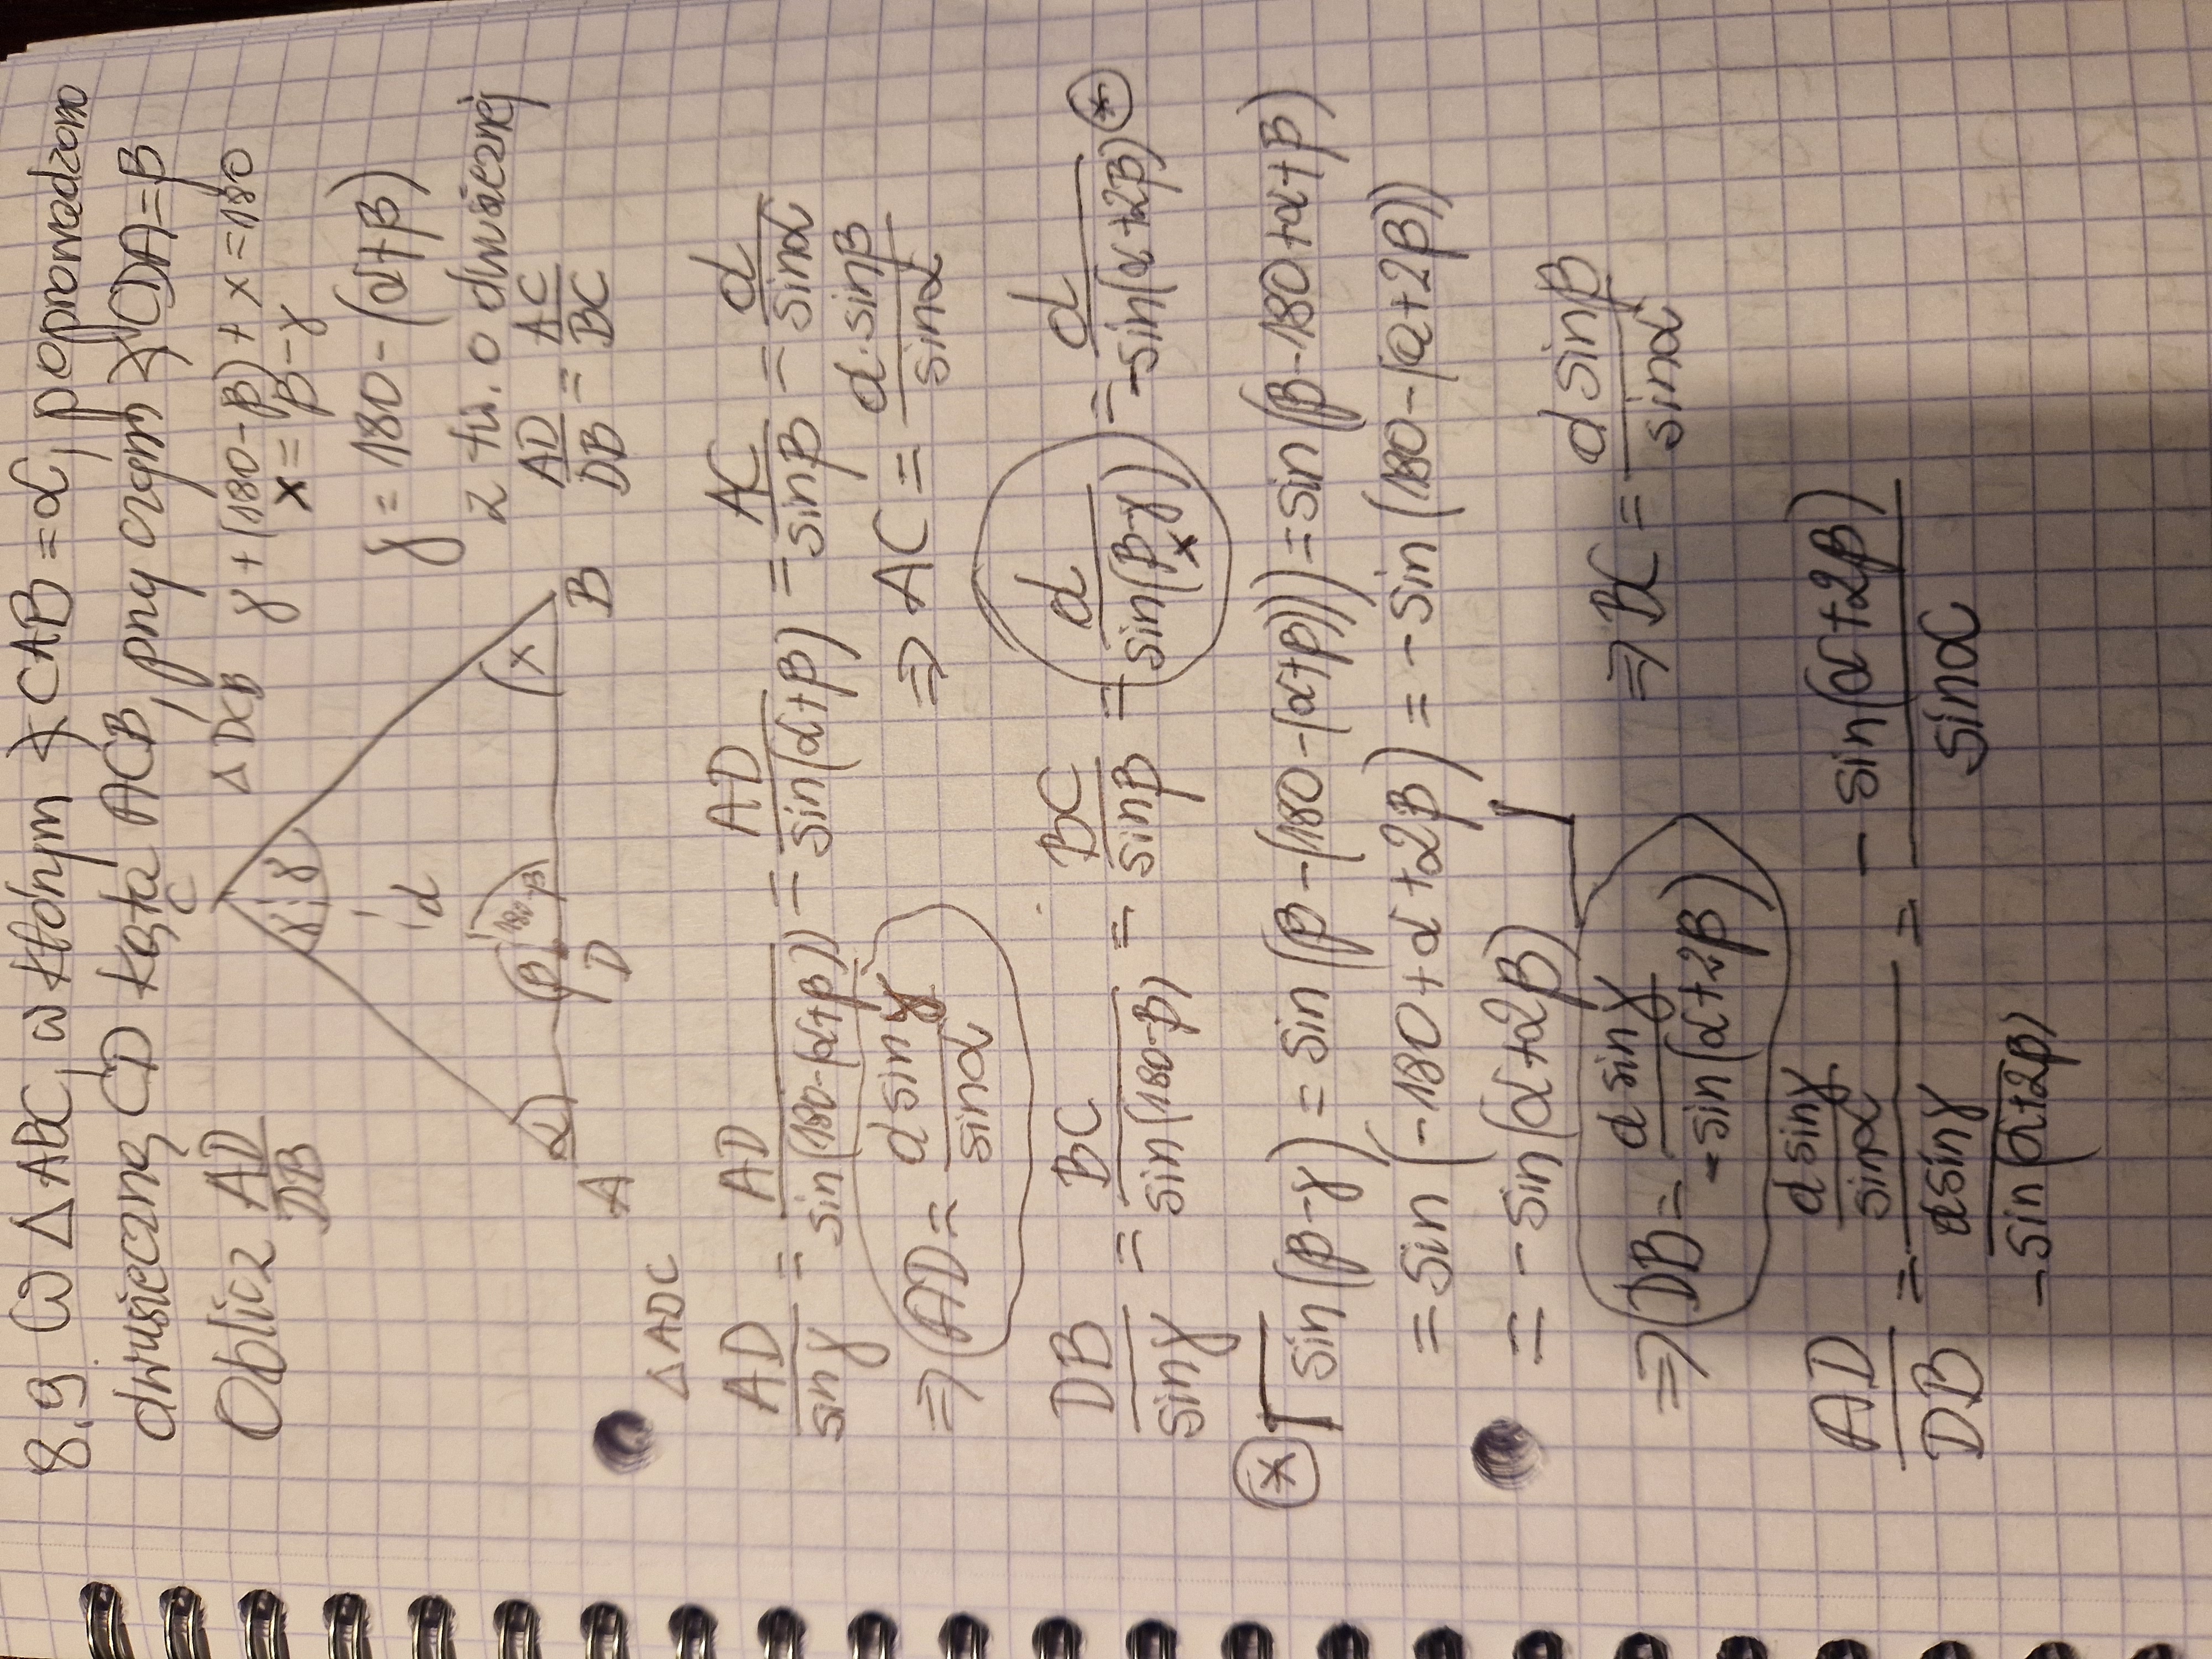 8.9 W Δ ABC, w którym ∢ CAB = α, poprowadzono
dwusieczną CD kąta ACB, przy czym ∢ CDA = β
Oblicz AD/DB
Δ DCB
γ + (180-β) + x = 180
x = β-γ
γ = 180 - (α+β)
z tw. o dwusiecznej
AD/DB = AC/BC
C
γ γ
d
α β 180-β x
A D B
Δ ADC
AD/sinγ = AD/sin(180-(α+β)) = AD/sin(α+β) = AC/sinβ = d/sinα
⇒ AD = d sinγ/sinα ⇒ AC = d·sinβ/sinα
DB/sinγ = BC/sin(180-β) = BC/sinβ = d/sin(β-γ) = d/-sin(α+2β) *
x
* sin(β-γ) = sin(β-(180-(α+β))) = sin(β-180+α+β)
= sin(-180+α+2β) = -sin(180-(α+2β))
= -sin(α+2β)
⇒ DB = d sinγ/-sin(α+2β) ⇒ BC = d sinβ/sinα
AD/DB = (d sinγ/sinα)/(d sinγ/-sin(α+2β)) = - sin(α+2β)/sinα